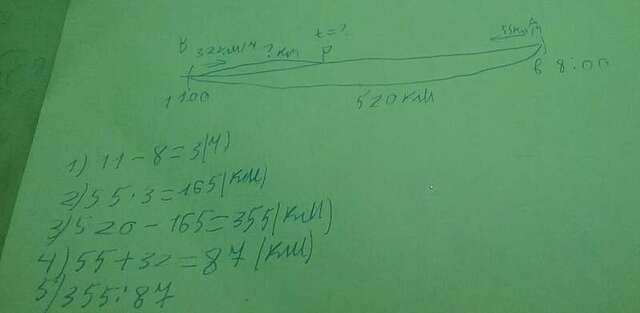 t=?
55км/ч
32км/ч
? км
1100
520км
8:00
1) 11-8=3(ч)
2) 55·3=165(км)
3) 520-165=355(км)
4) 55+32=87(км)
5) 355:87